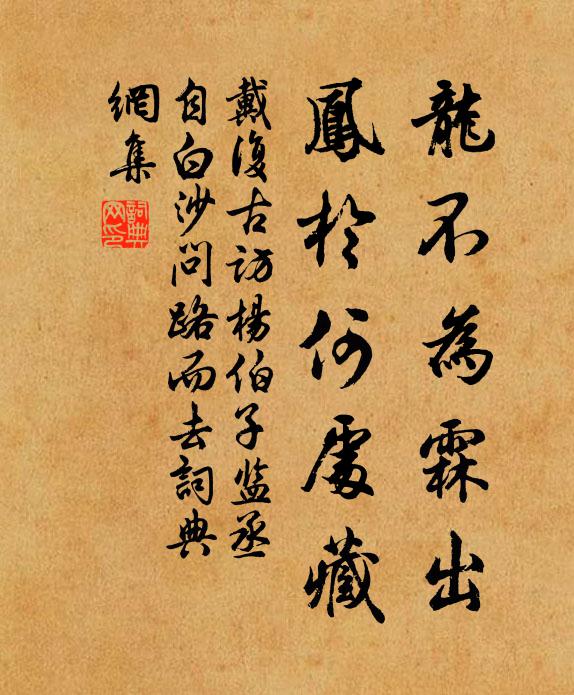 龍不為霖出
鳳於何處藏
戴復古訪楊伯子监丞
自白沙問路而去詞典
網集
詞典
网印